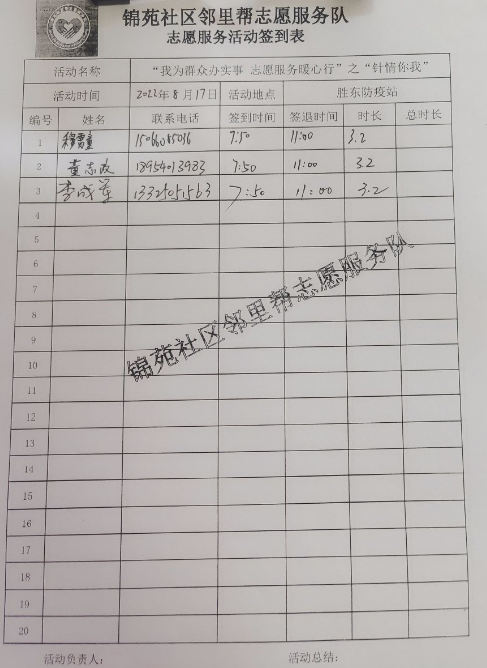 锦苑社区邻里帮志愿服务队
志愿服务活动签到表
活动名称 “我为群众办实事 志愿服务暖心行”之“针情你我”
活动时间 2022年8月17日 活动地点 胜东防疫站
编号 姓名 联系电话 签到时间 签退时间 时长 总时长
1 穆雪童 15066045016 7:50 11:00 3.2
2 董志政 18954013983 7:50 11:00 3.2
3 李成军 13325051563 7:50 11:00 3.2
4
5
6
7
8
9
10
11
12
13
14
15
16
17
18
19
20
锦苑社区邻里帮志愿服务队
活动负责人: 活动总结: